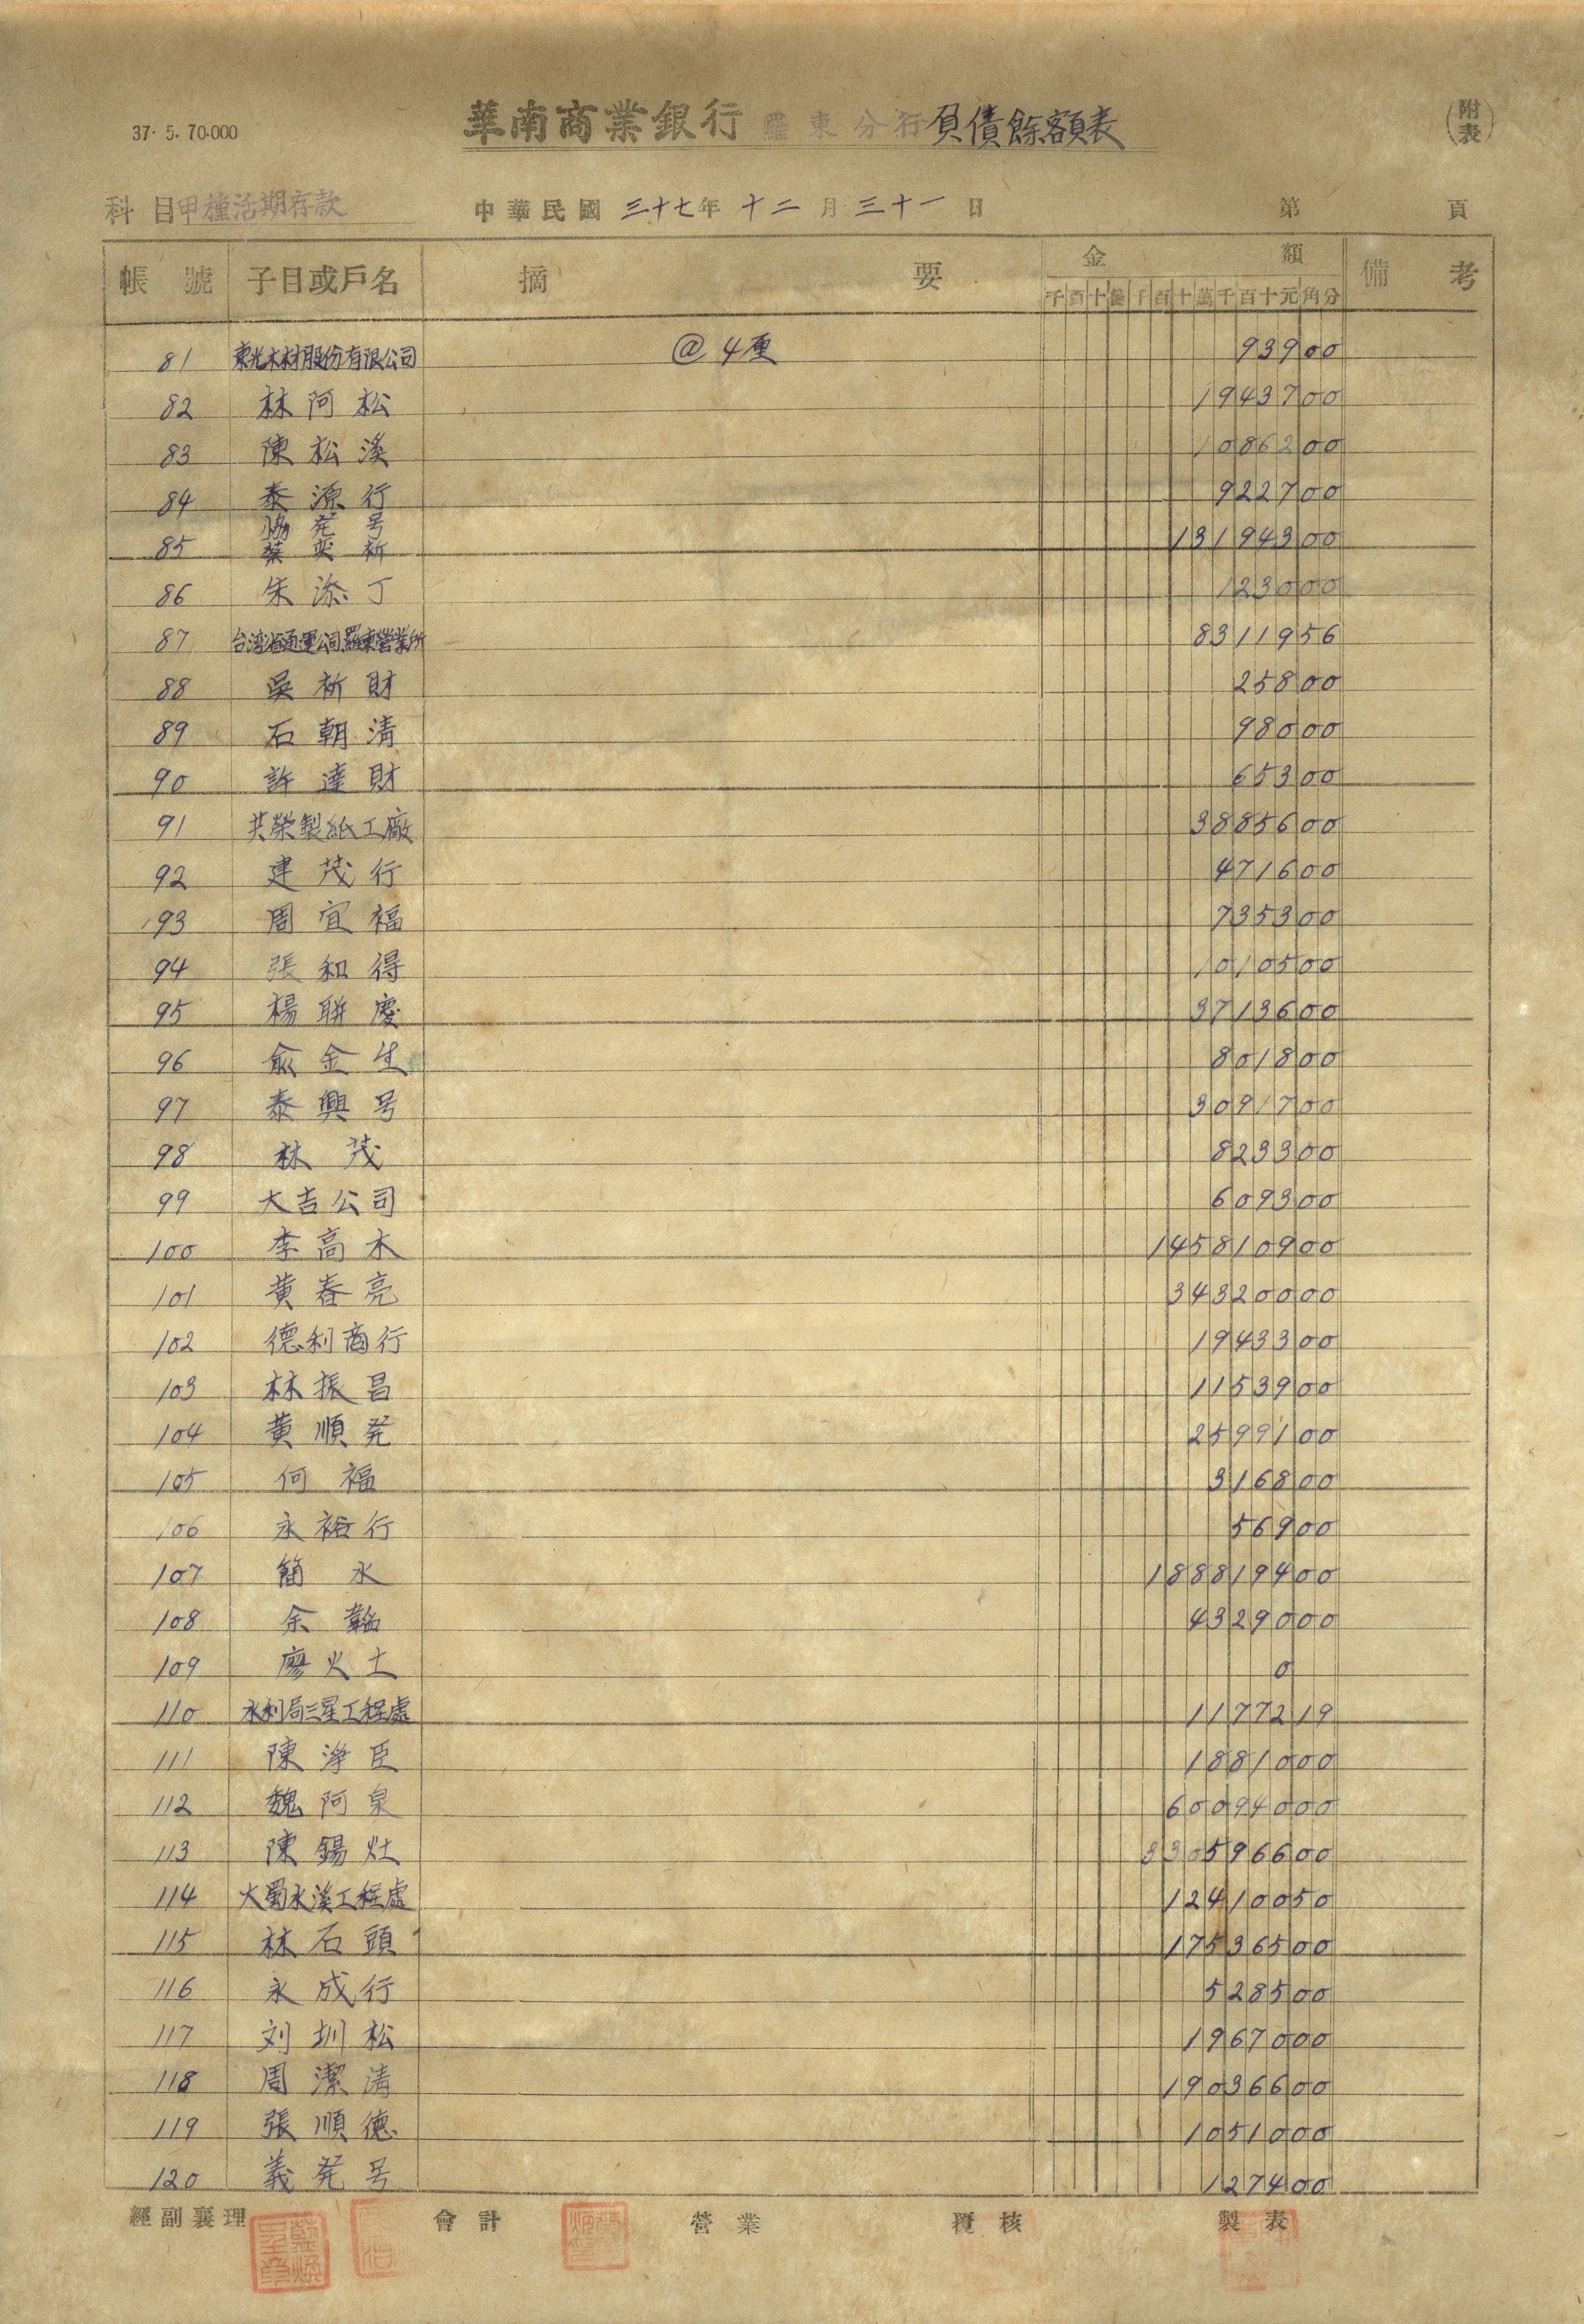 37. 5. 70.000
華南商業銀行 羅東分行 負債餘額表
(附表)
科目 甲種活期存款 中華民國 三十七年 十二月 三十一日 第 頁
帳號 子目或戶名 摘要 金額 備考
千百十億千百十萬千百十元角分
81 東光木材股份有限公司 @4厘 93900
82 林阿松 1943700
83 陳松溪 1086200
84 泰源行 922700
協発号
85 蔡奕祈 13194300
86 朱添丁 123000
87 台湾省通運公司羅東營業所 8311956
88 吳祈財 25800
89 石朝清 98000
90 許達財 65300
91 共榮製紙工廠 3885600
92 建茂行 471600
93 周宜福 735300
94 張和得 1010500
95 楊聨慶 3713600
96 俞金生 801800
97 泰興号 3091700
98 林茂 823300
99 大吉公司 609300
100 李高木 145810900
101 黄春亮 34320000
102 德利商行 1943300
103 林振昌 1153900
104 黄順発 2599100
105 何福 316800
106 永裕行 56900
107 簡永 188819400
108 余 4329000
109 廖火土 0
110 水利局三星工程處 1177219
111 陳淨臣 1881000
112 魏阿泉 60094000
113 陳錫灶 330596600
114 大蜀水溪工程處 12410050
115 林石頭 17536500
116 永成行 528500
117 刘圳松 1967000
118 周潔清 19036600
119 張順德 1051000
120 義発号 127400
經副襄理 會計 營業 覆核 製表